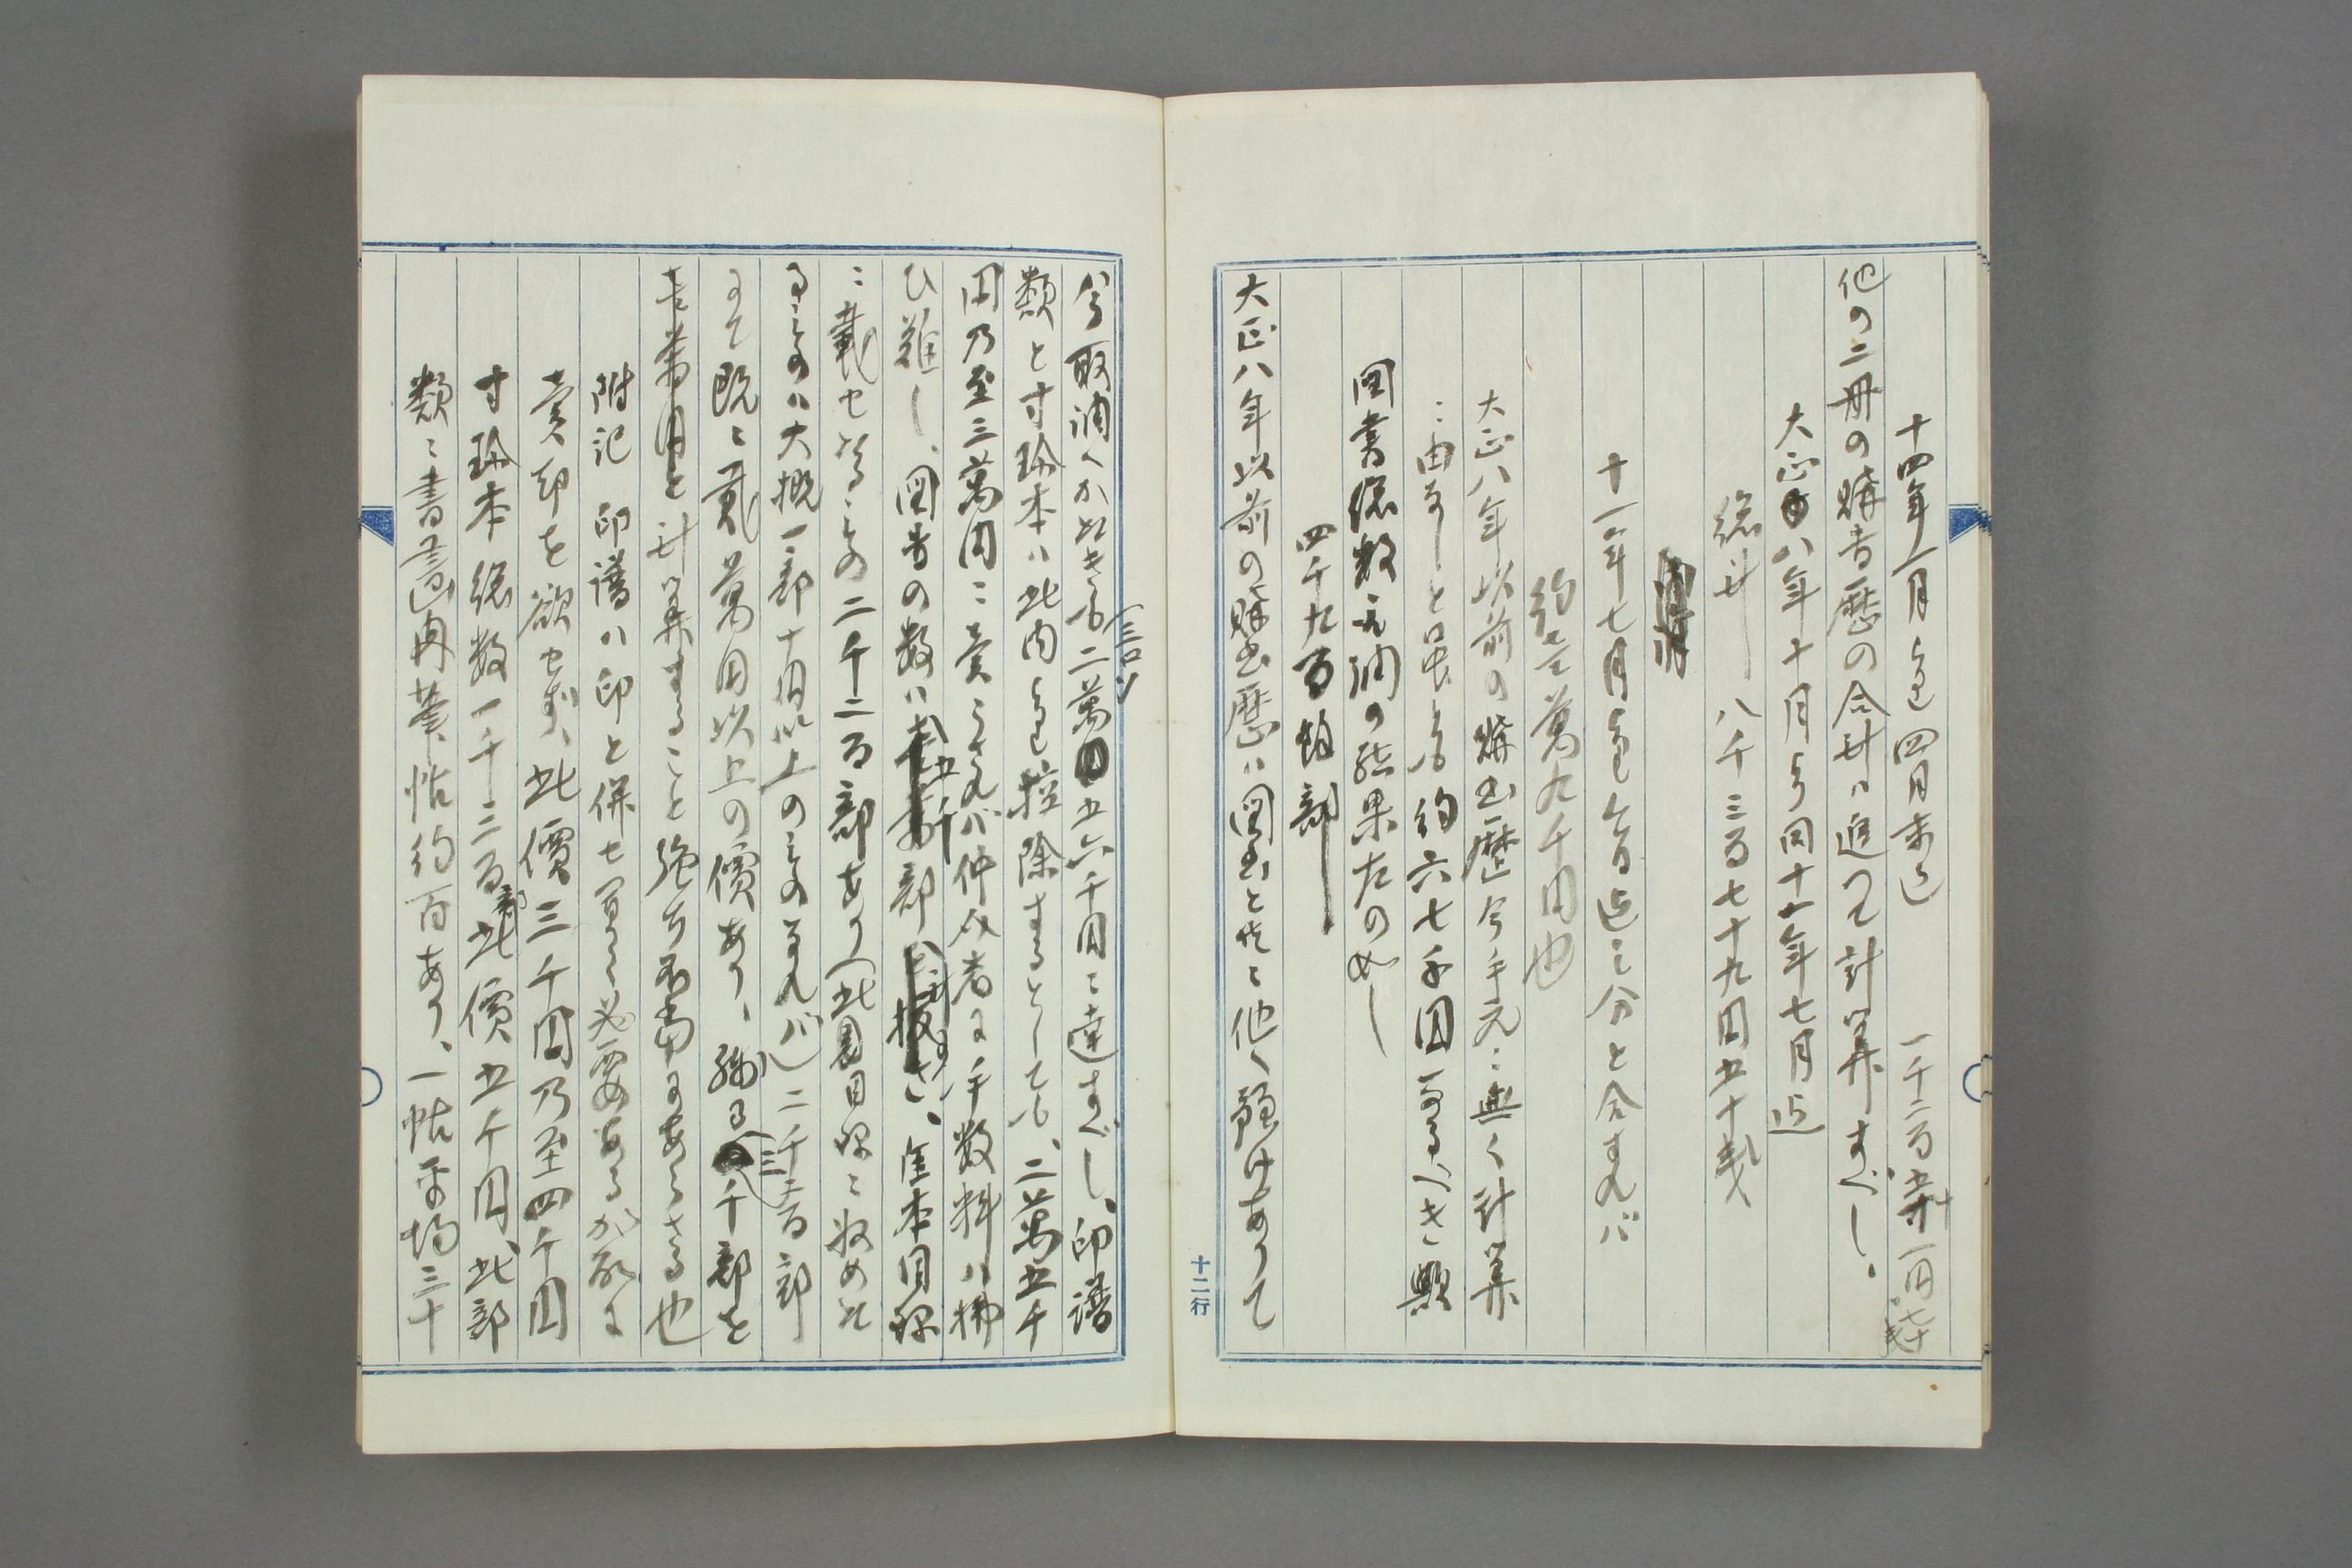 十四年一月ゟ四月末迄　一千二百五十一円七十
他の二冊の購書歴の合計ハ追って計算すべし、
大正八年十月ゟ同十一年七月迄
総計　八千三百七十九円五十銭
十一年七月ゟ今日迄之分と合すれバ
約壱萬九千円也
大正八年以前の購書歴今手元ニ無く計算
ニ由なしと雖も約六七千円なるべき歟
図書総数取調の結果左の如し
四千九百餘部
大正八年以前の購書歴ハ図書と共に他へ預けありて
十二行
今取調べかたきも二萬五六千円ニ達すべし、印譜
類と寸珍本ハ此内ゟ控除するとしても、二萬五千
円乃至三萬円ニ売らされバ仲介者に手数料ハ拂
ひ難し、図書の数ハ五千部
ニ載せざるもの二千二百部あり（此目録ニ収めた
るものハ大概一部十円以上のものなれバ）二千二百部
にて既ニ貳萬円以上の價あり、残る三千部を
壱萬円と計算すること強ち不当にあらざる也
附記　印譜ハ印と併せ必要あるが故に
売却を欲せず、此價三千円乃至四千円
寸珍本総数一千二百部此價五千円、此部
類ニ書畫冊葉、帖約百あり、一帖平均三十